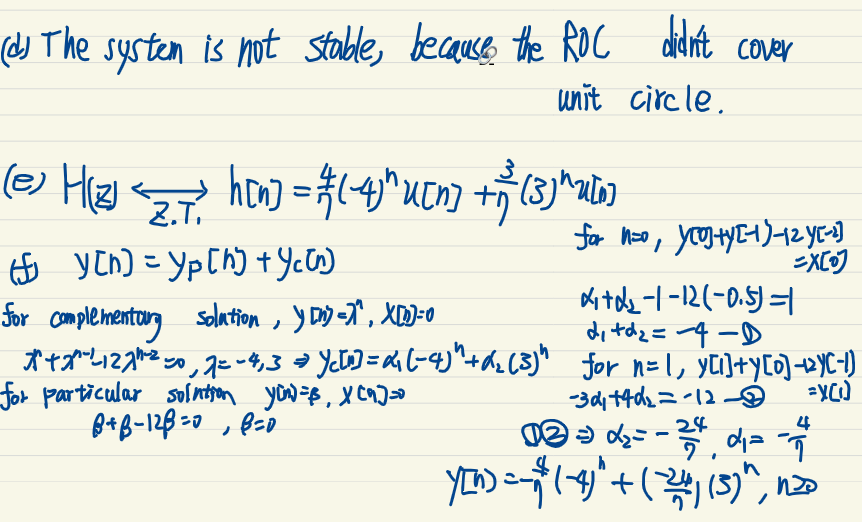 (d) The system is not stable, because the ROC didn't cover
unit circle.
(e) H(z) ⟷ h[n] = 4/7 (-4)^n u[n] + 3/7 (3)^n u[n]
Z.T.
(f) y[n] = yp[n] + yc[n]
for complementary solution, y[n]=λ^n, x[n]=0
λ^n + λ^(n-1) - 12λ^(n-2) = 0, λ = -4, 3 ⇒ yc[n] = α1(-4)^n + α2(3)^n
for particular solution y[n]=β, x[n]=0
β+β-12β=0, β=0
for n=0, y[0]+y[-1]-12y[-2]
=x[0]
α1+α2-1-12(-0.5)=1
α1+α2 = -4 —①
for n=1, y[1]+y[0]-12y[-1]
=x[1]
-3α1+4α2 = -12 —②
①② ⇒ α2 = -24/7, α1 = -4/7
y[n] = -4/7 (-4)^n + (-24/7)(3)^n, n≥0